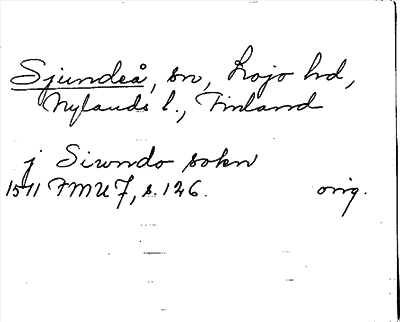 Sjundeå, sn, Lojo hd,
Nylands l., Finland
j Siwndo sokn
1511 FMU 7, s. 126. orig.